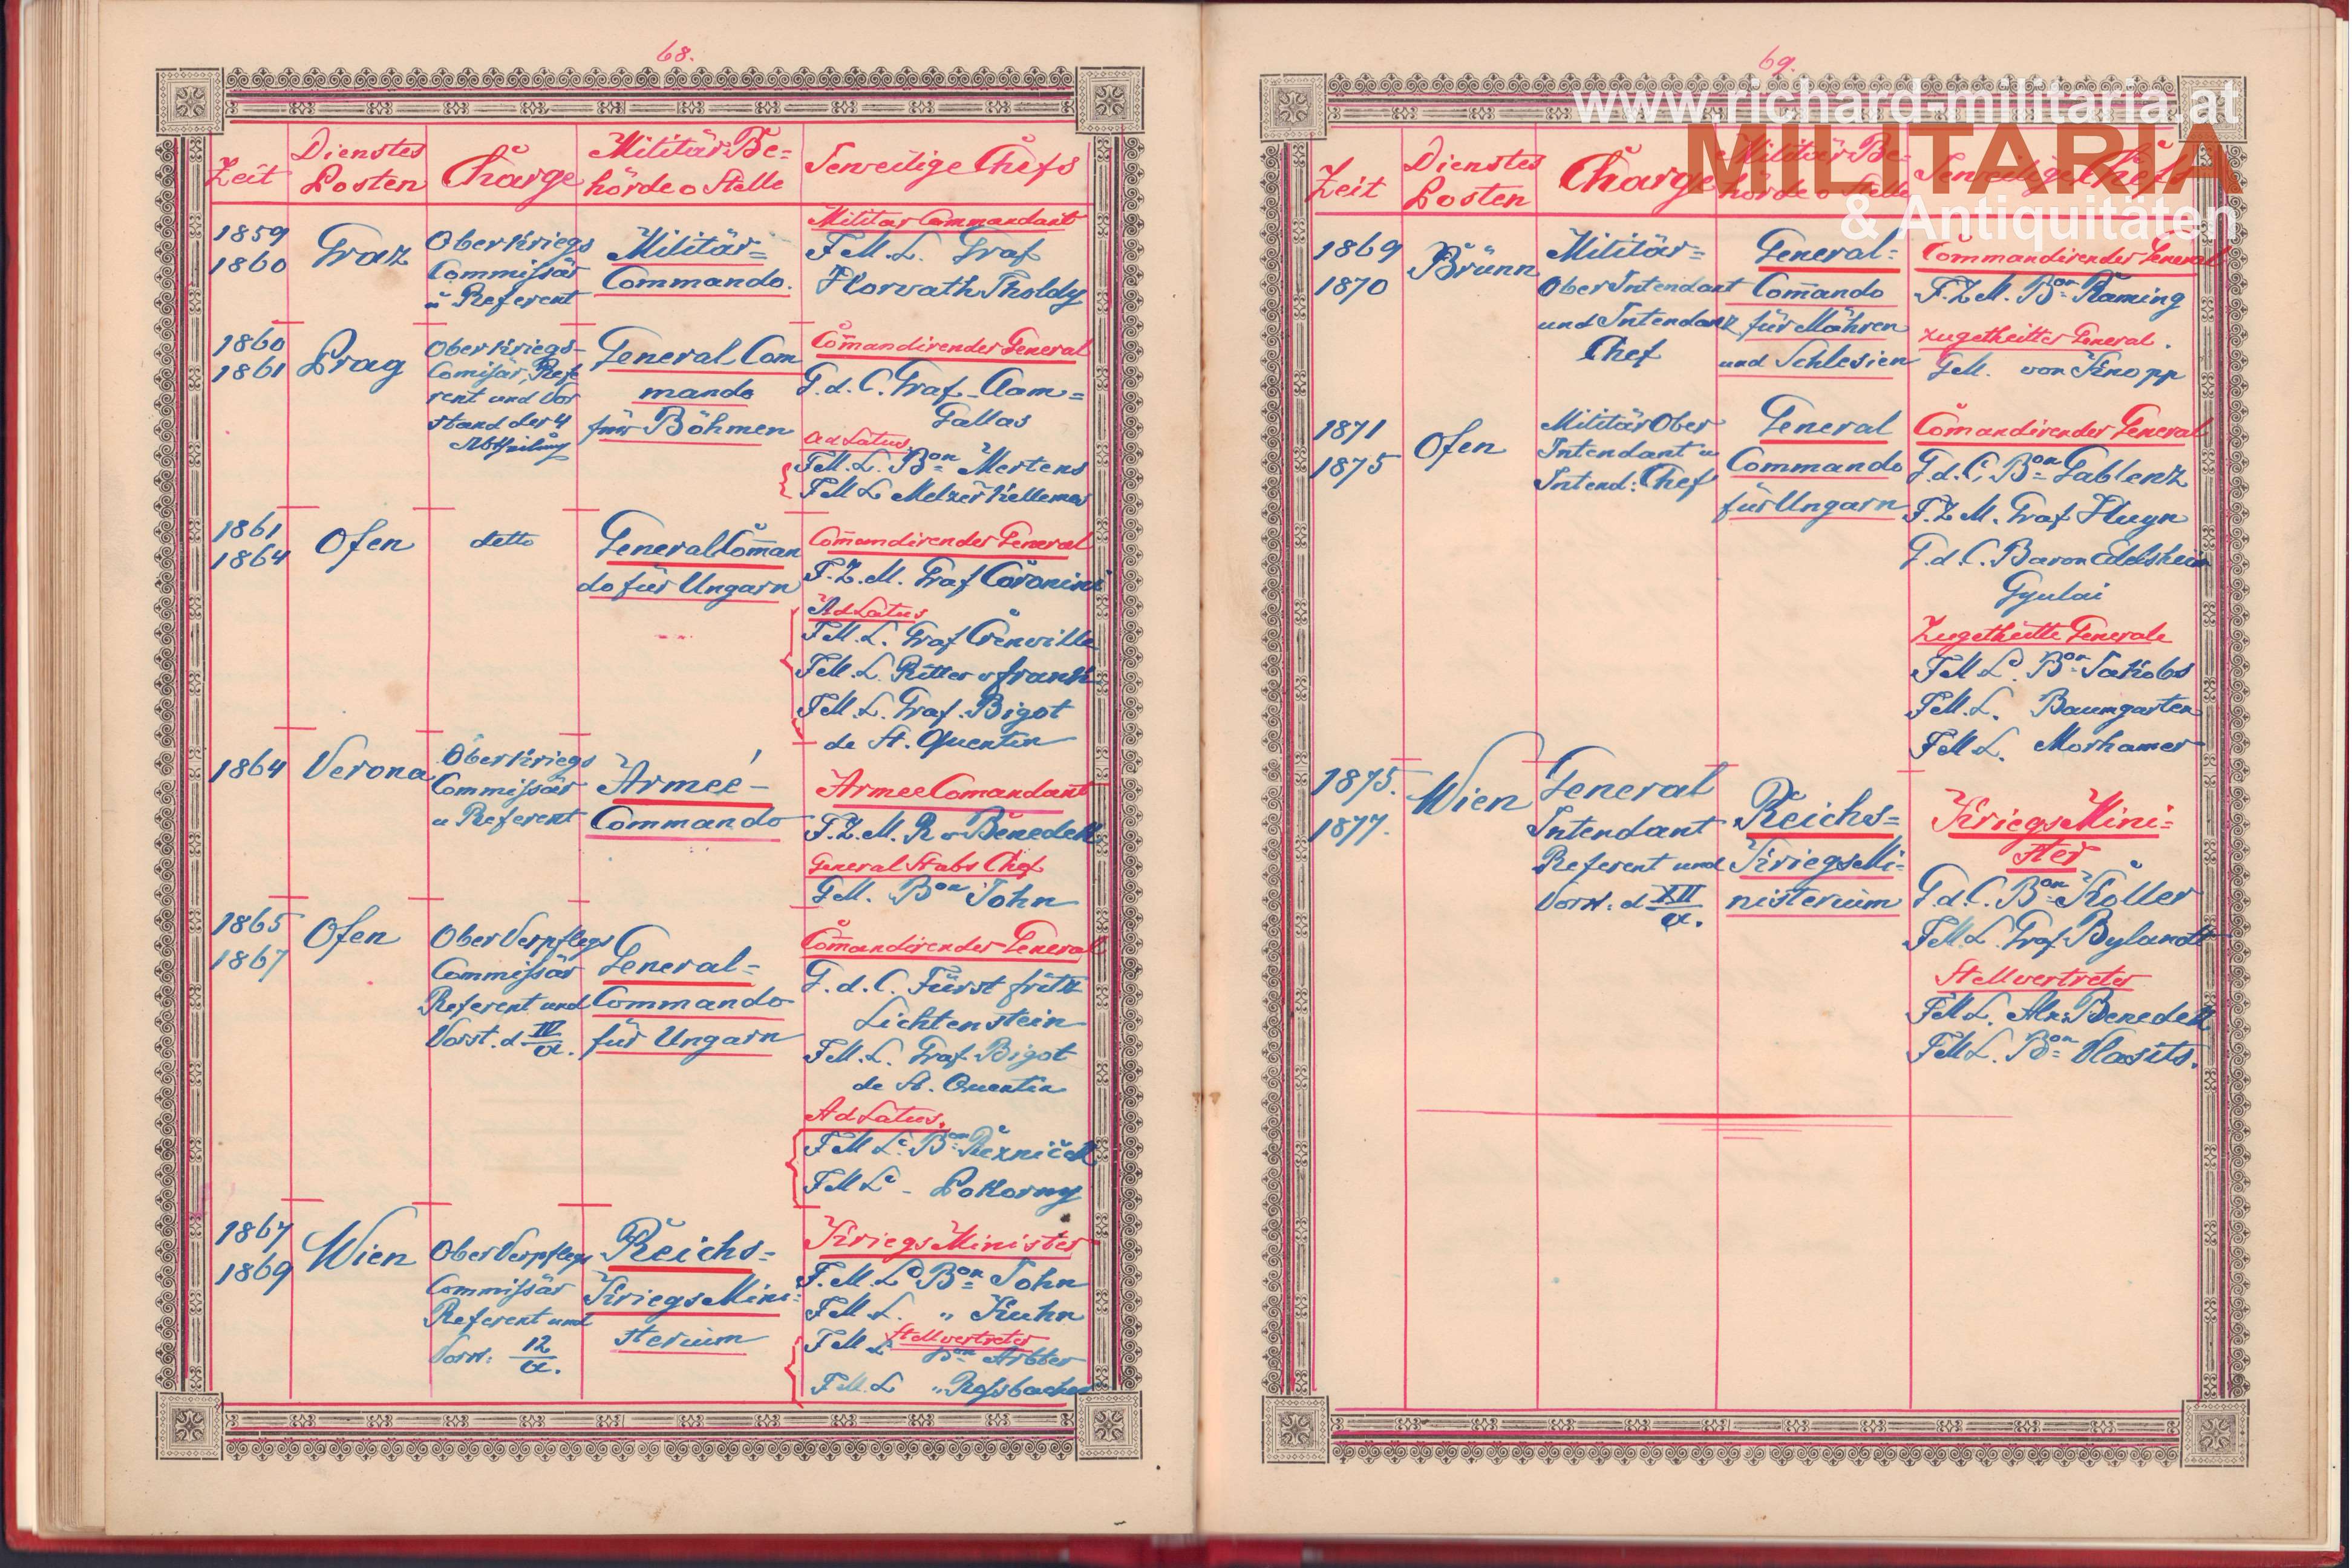 68.
Zeit
Dienstes
Posten
Charge
Militär Be=
hörde o Stelle
Jeweilige Chefs
1859
1860
Graz
OberKriegs
Commißär
u Referent
Militär=
Commando.
Militär Commandant
F.M.L. Graf
Horvath Tholdy
1860
1861
Prag
OberKriegs-
Comißär, Refe
rent und Vor
stand der 4
Abtheilung
General Com
mando
für Böhmen
Commandirender General
G.d.C. Graf Clam=
Gallas
ad Latus
F.M.L. Bon Mertens
F.M.L Melzer Kellemes
1861
1864
Ofen
detto
General Comman
do für Ungarn
Commandirender General
F.Z.M. Graf Coronini
Ad Latus
F.M.L. Graf Crenville
F.M.L. Ritter v Frank
F.M.L. Graf. Bigot
de St. Quentin
1864
Verona
OberKriegs
Commißär
u Referent
Armeé-
Commando
Armee Comandant
F.Z.M. R v Benedek
General Stabs Chef
G.M. Bon John
1865
1867
Ofen
Ober Verpflegs
Commißär
Referent und
Vorst. d IV
a.
General=
Commando
für Ungarn
Commandirender General
G.d.C. Fürst fritz
Lichtenstein
F.M.L. Graf. Bigot
de St. Quentin
Ad Latus.
F.M.L. Bon Rezniček
F.M.L. - Pokorny
1867
1869
Wien
Ober Verpflegs
Commißär
Referent und
Vorst: 12
a.
Reichs=
KriegsMini=
sterium
Kriegs Minister
F.M.L. Bon John
F.M.L. " Kuhn
Stellvertreter
F.M.L Bon Arbter
F.M.L " Roßbacher
69.
www.richard-militaria.at
MILITARIA
& Antiquitäten
Zeit
Dienstes
Posten
Charge
Militär Be=
hörde o Stelle
Jeweilige Chefs
1869
1870
Brünn
Militär=
Ober Intendant
und Intendanz
Chef
General=
Commando
für Mähren
und Schlesien
Commandirender General
F.Z.M. Bon Raming
zugetheilter General.
G.M. von Knopp
1871
1875
Ofen
Militär Ober
Intendant u
Intend: Chef
General
Commando
für Ungarn
Commandirender General
G.d.C. Bon Gablenz
F.Z.M. Graf Huyn
G.d.C. Baron Edelsheim
Gyulai
Zugetheilte Generale
F.M.L. Bon Jakobs
F.M.L. Baumgarten
F.M.L. Morhamer
1875.
1877.
Wien
General
Intendant
Referent und
Vorst. d XII
a.
Reichs=
KriegsMi=
nisterium
KriegsMini=
ster
G.d.C. Bon Koller
F.M.L. Graf. Bylandt
Stellvertreter
F.M.L. Alx: Benedek
F.M.L. Bon Vlasits.